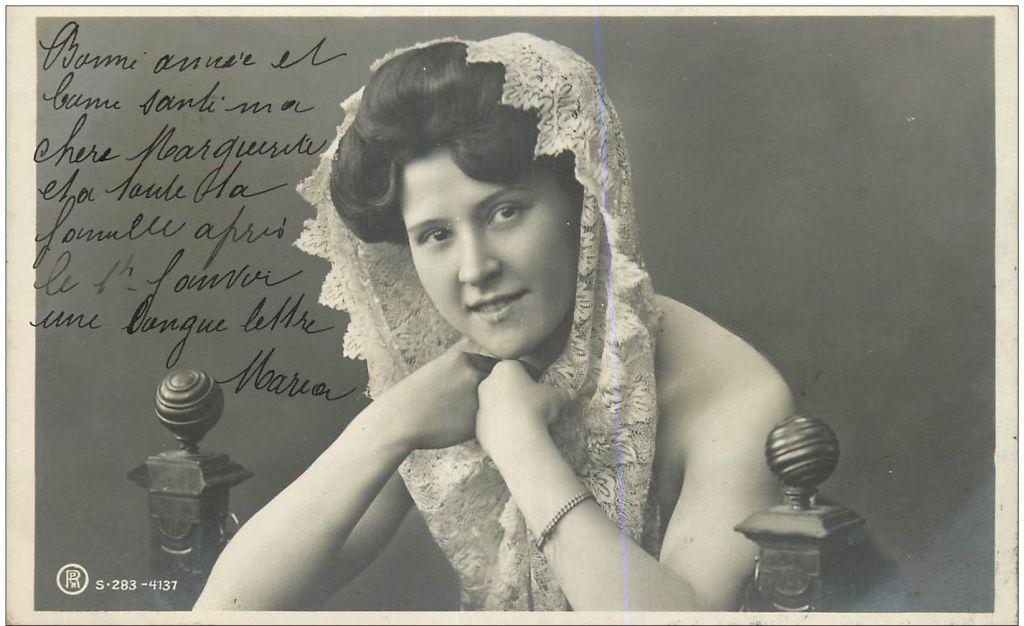 Bonne année et
bonne santé ma
chere Marguerite
et a toute ta
famille apris
le 1er Janvier
une longue lettre
Maria
RPH
S·283-4137